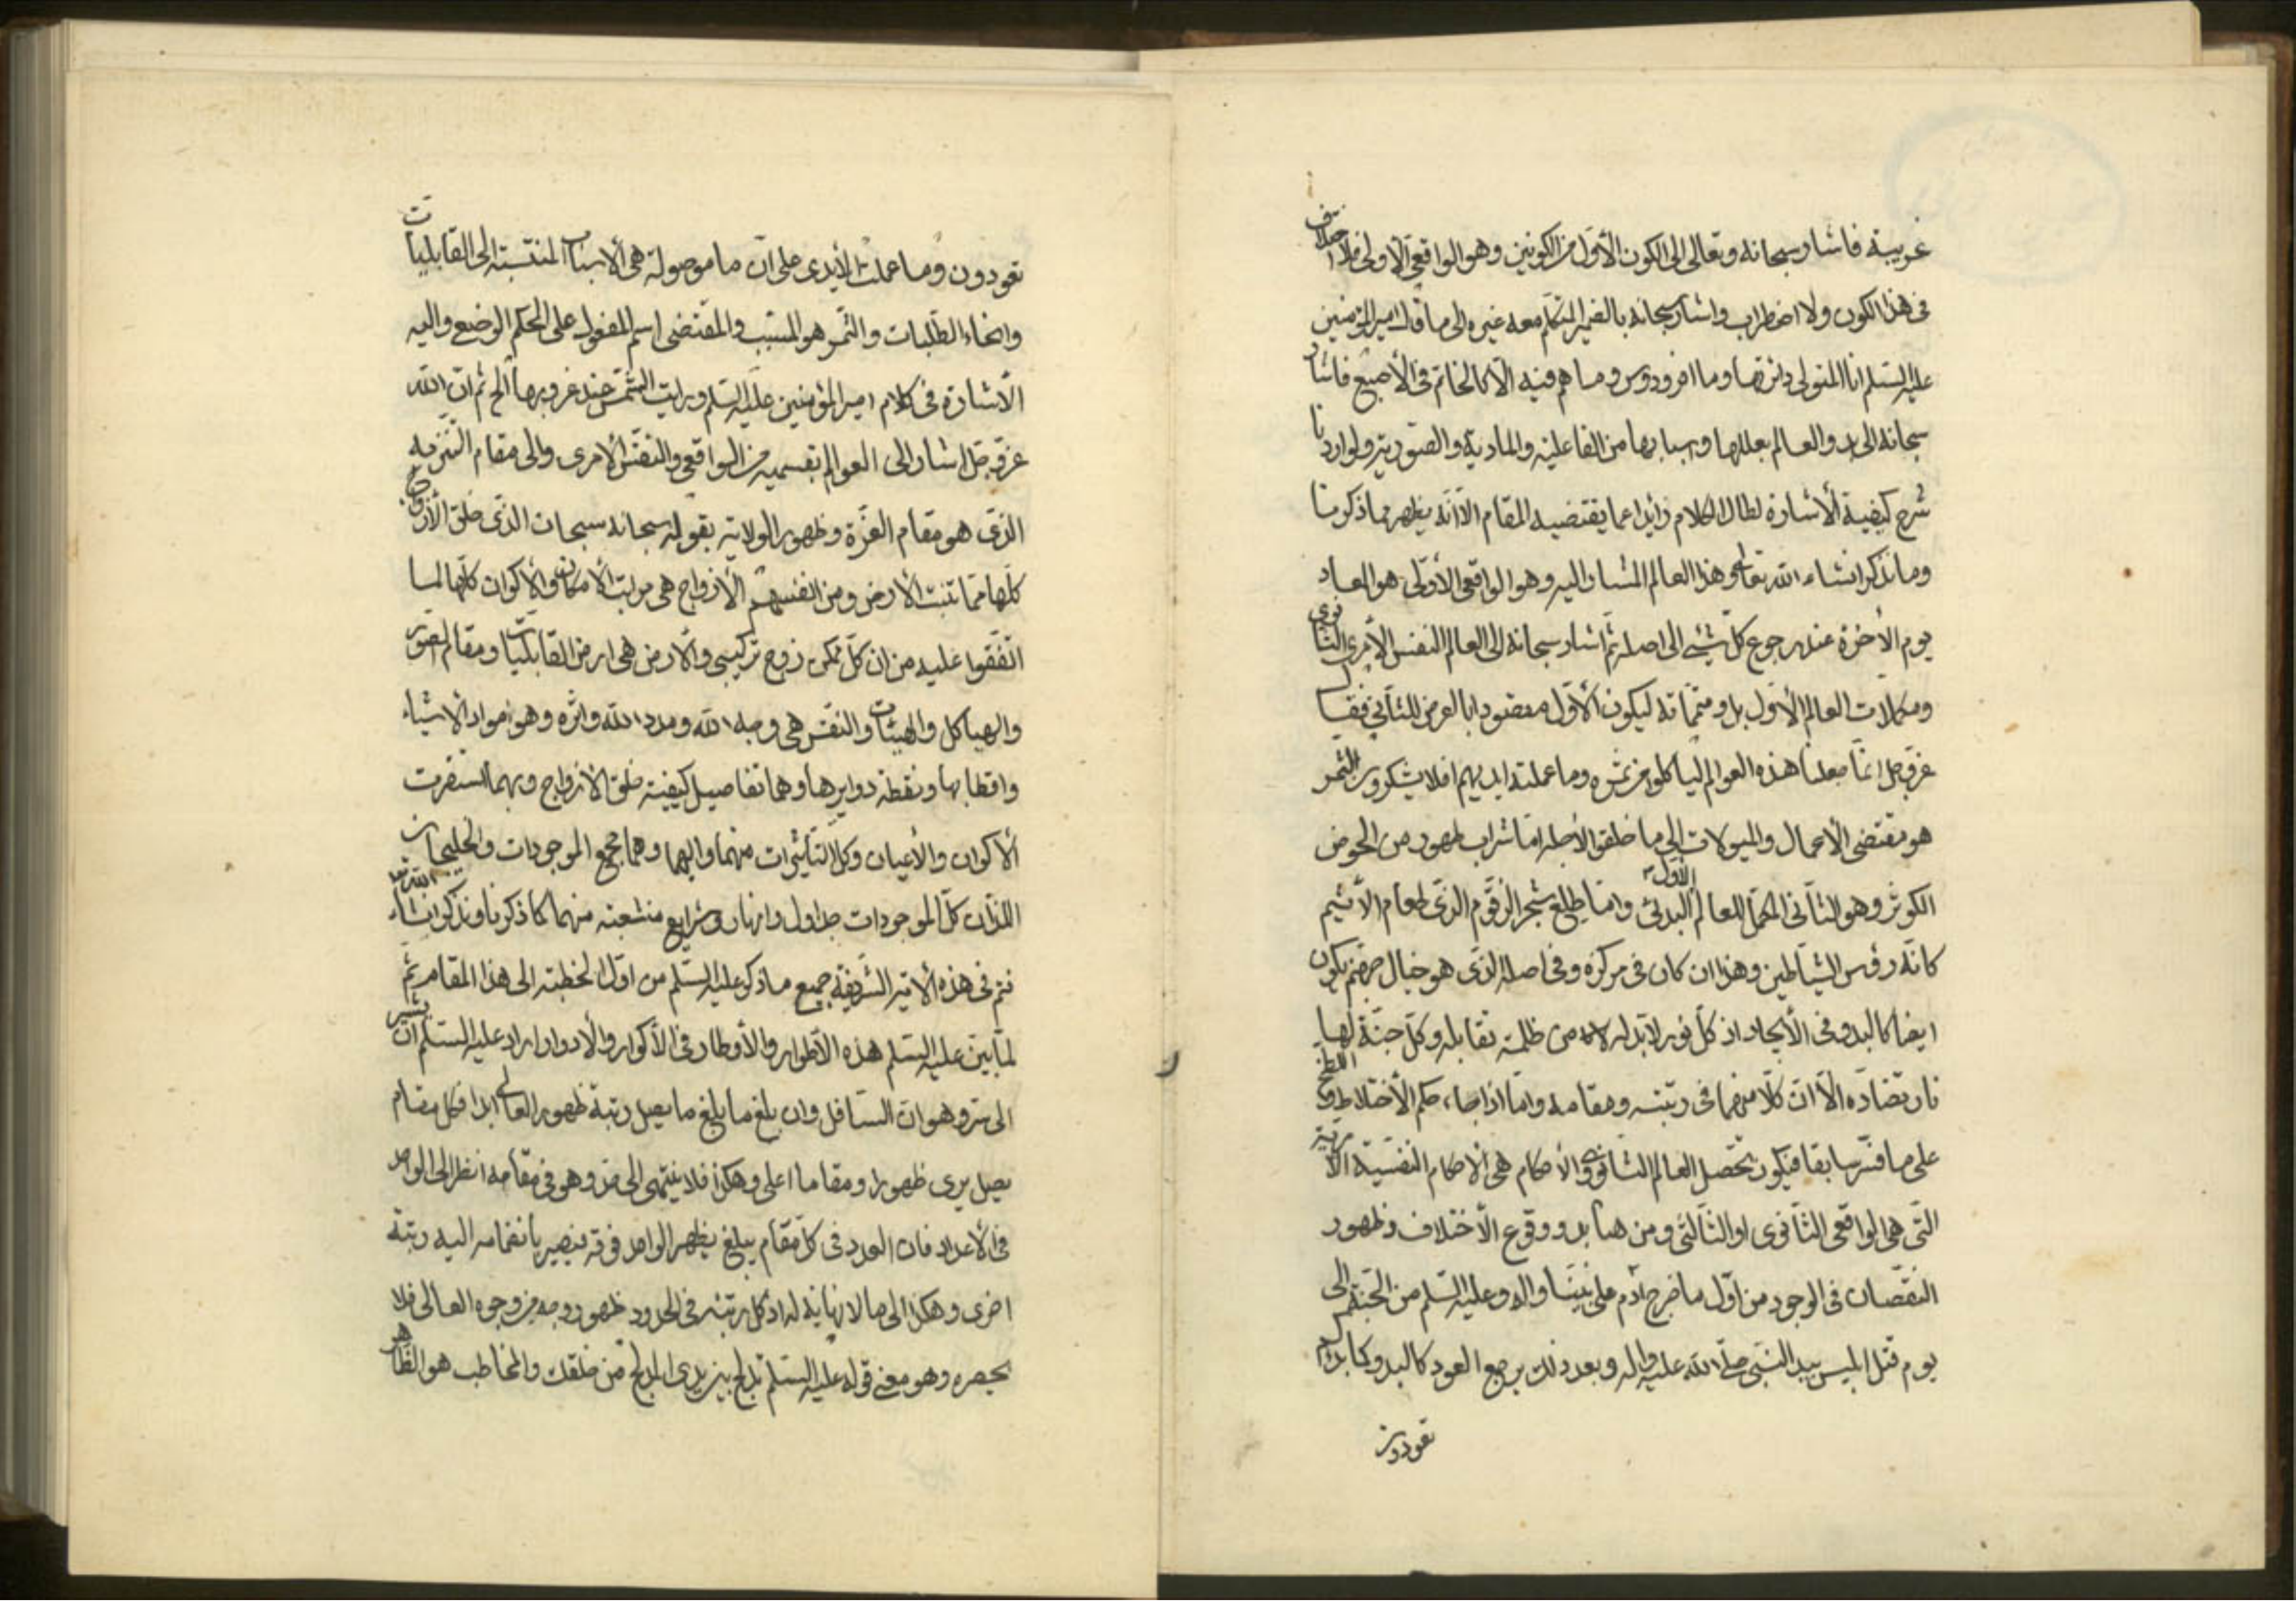 غريبة فاشار سبحانه وتعالى الى الكون الأول من الكونين وهو الواقعي الاولى فلا اختلاف
فى هذا الكون ولا اضطراب واشار سبحانه بالضمير المتكلم معه غيره الى ما قال امير المؤمنين
عليه السلم انا المتولى دائرتها وما افردوس وما هم فيه الا كالخاتم فى الأصبع فاشار
سبحانه الى بدو العالم بعللها واسبابها من الفاعلية والمادية والصورية ولو اردنا
شرح كيفية الأشارة لطال الكلام زايدا عما يقتضيه المقام الا انه يظهر مما ذكرنا
وما نذكر انشاء الله تعالى وهذا العالم المشار اليه وهو الواقعى الأولى هو المعاد
يوم الأخرة عند رجوع كل شيئ الى اصله ثم اشار سبحانه الى العالم النفس الأمرى الثانوى
ومكملات العالم الأول بل ومتمماته ليكون الأول مقصودا بالعرض للثانى فقال
عز وجل انما جعلنا هذه العوالم لياكلوا من ثمره وما عملته ايديهم افلا يشكرون الثمر
هو مقتضى الأعمال والميولات الى ما خلقوا لأجله اما شراب طهور من الحوض
الكوثر وهو الثانى المكمل للعالم الأول البدئى واما طلع شجر الزقوم الذى طعام الأثيم
كانه رؤس الشياطين وهذا ان كان فى مركزه وفى اصله الذى هو خيال جهنم يكون
ايضا كالبدو فى الأيجاد اذ كل نور لا بد له من ظلمة تقابله وكل جنة لها
نار تضاده الا ان كلا منهما فى رتبته ومقامه واما اذا جاء حكم الأختلاط واللطخ
على ما فسر سابقا فيكون تحصل العالم الثانوى والأحكام هى الأحكام النفسية الأمرية
التى هى الواقعى الثانوى او الثالثى ومن هنا بدو وقوع الأختلاف وظهور
النقصان فى الوجود من اول ما خرج آدم على نبينا واله وعليه السلم من الجنة الى
يوم قتل ابليس بيد النبى صلى الله عليه واله وبعد ذلك يرجع العود كالبدو كما بداكم
تعودون
تعودون وما عملت الأيدى على ان ما موصولة هى الأسباب المنتسبة الى القابليات
وانحاء الطلبات والثمر هو المسبب والمقتضى اسم المفعول على الحكم الوضع واليه
الأشارة فى كلام امير المؤمنين عليه السلم ورايت الشمس عند غروبها الخ ثم ان الله
عز وجل اشار الى العوالم بقسميه من الواقعى والنفس الأمرى والى مقام التنزيه
الذى هو مقام العزة وظهور الولاية بقوله سبحانه سبحان الذى خلق الأزواج
كلها مما تنبت الأرض ومن انفسهم الأزواج هى مراتب الأمكان والأكوان كلها لما
اتفقوا عليه من ان كل ممكن زوج تركيبى والأرض هى ارض القابليات ومقام الصور
والهياكل والهيئات والنفس هى وجه الله ومدد الله واثره وهو مواد الأشياء
واقطابها ونقطة دوايرها وهما تفاصيل كيفية خلق الأزواج وبهما استقرت
الأكوان والأعيان وكل التأثيرات منهما واليهما وهما مجمع الموجودات والخليجان
اللذان كل الموجودات جداول وانهار وشرايع منشعبة منهما كما ذكرنا ونذكر انشاء الله تعا
فتم فى هذه الأية الشريفة جميع ما ذكر عليه السلم من اول الخطبة الى هذا المقام ثم
لما بين عليه السلم هذه الأطوار والأوطار فى الأكوار والأدوار اراد عليه السلم ان يشير
الى سر وهو ان السافل وان بلغ ما بلغ ما يصل رتبة ظهور العالى ابدا فكل مقام
يصل يرى ظهورا ومقاما اعلى وهكذا فلا ينتهى الى حد وهو فى مقامه انظر الى الواحد
فى الأعداد فان العدد فى كل مقام يبلغ يظهر الواحد فوقه فيصير بانضمامه اليه رتبة
اخرى وهكذا الى ما لا نهاية له اذ كل رتبة فى الحدود ظهور وجه من وجوه العالى فلا
يحصره وهو معنى قوله عليه السلم تدلج بين يدى المدلج من خلقك والمخاطب هو الظاهر